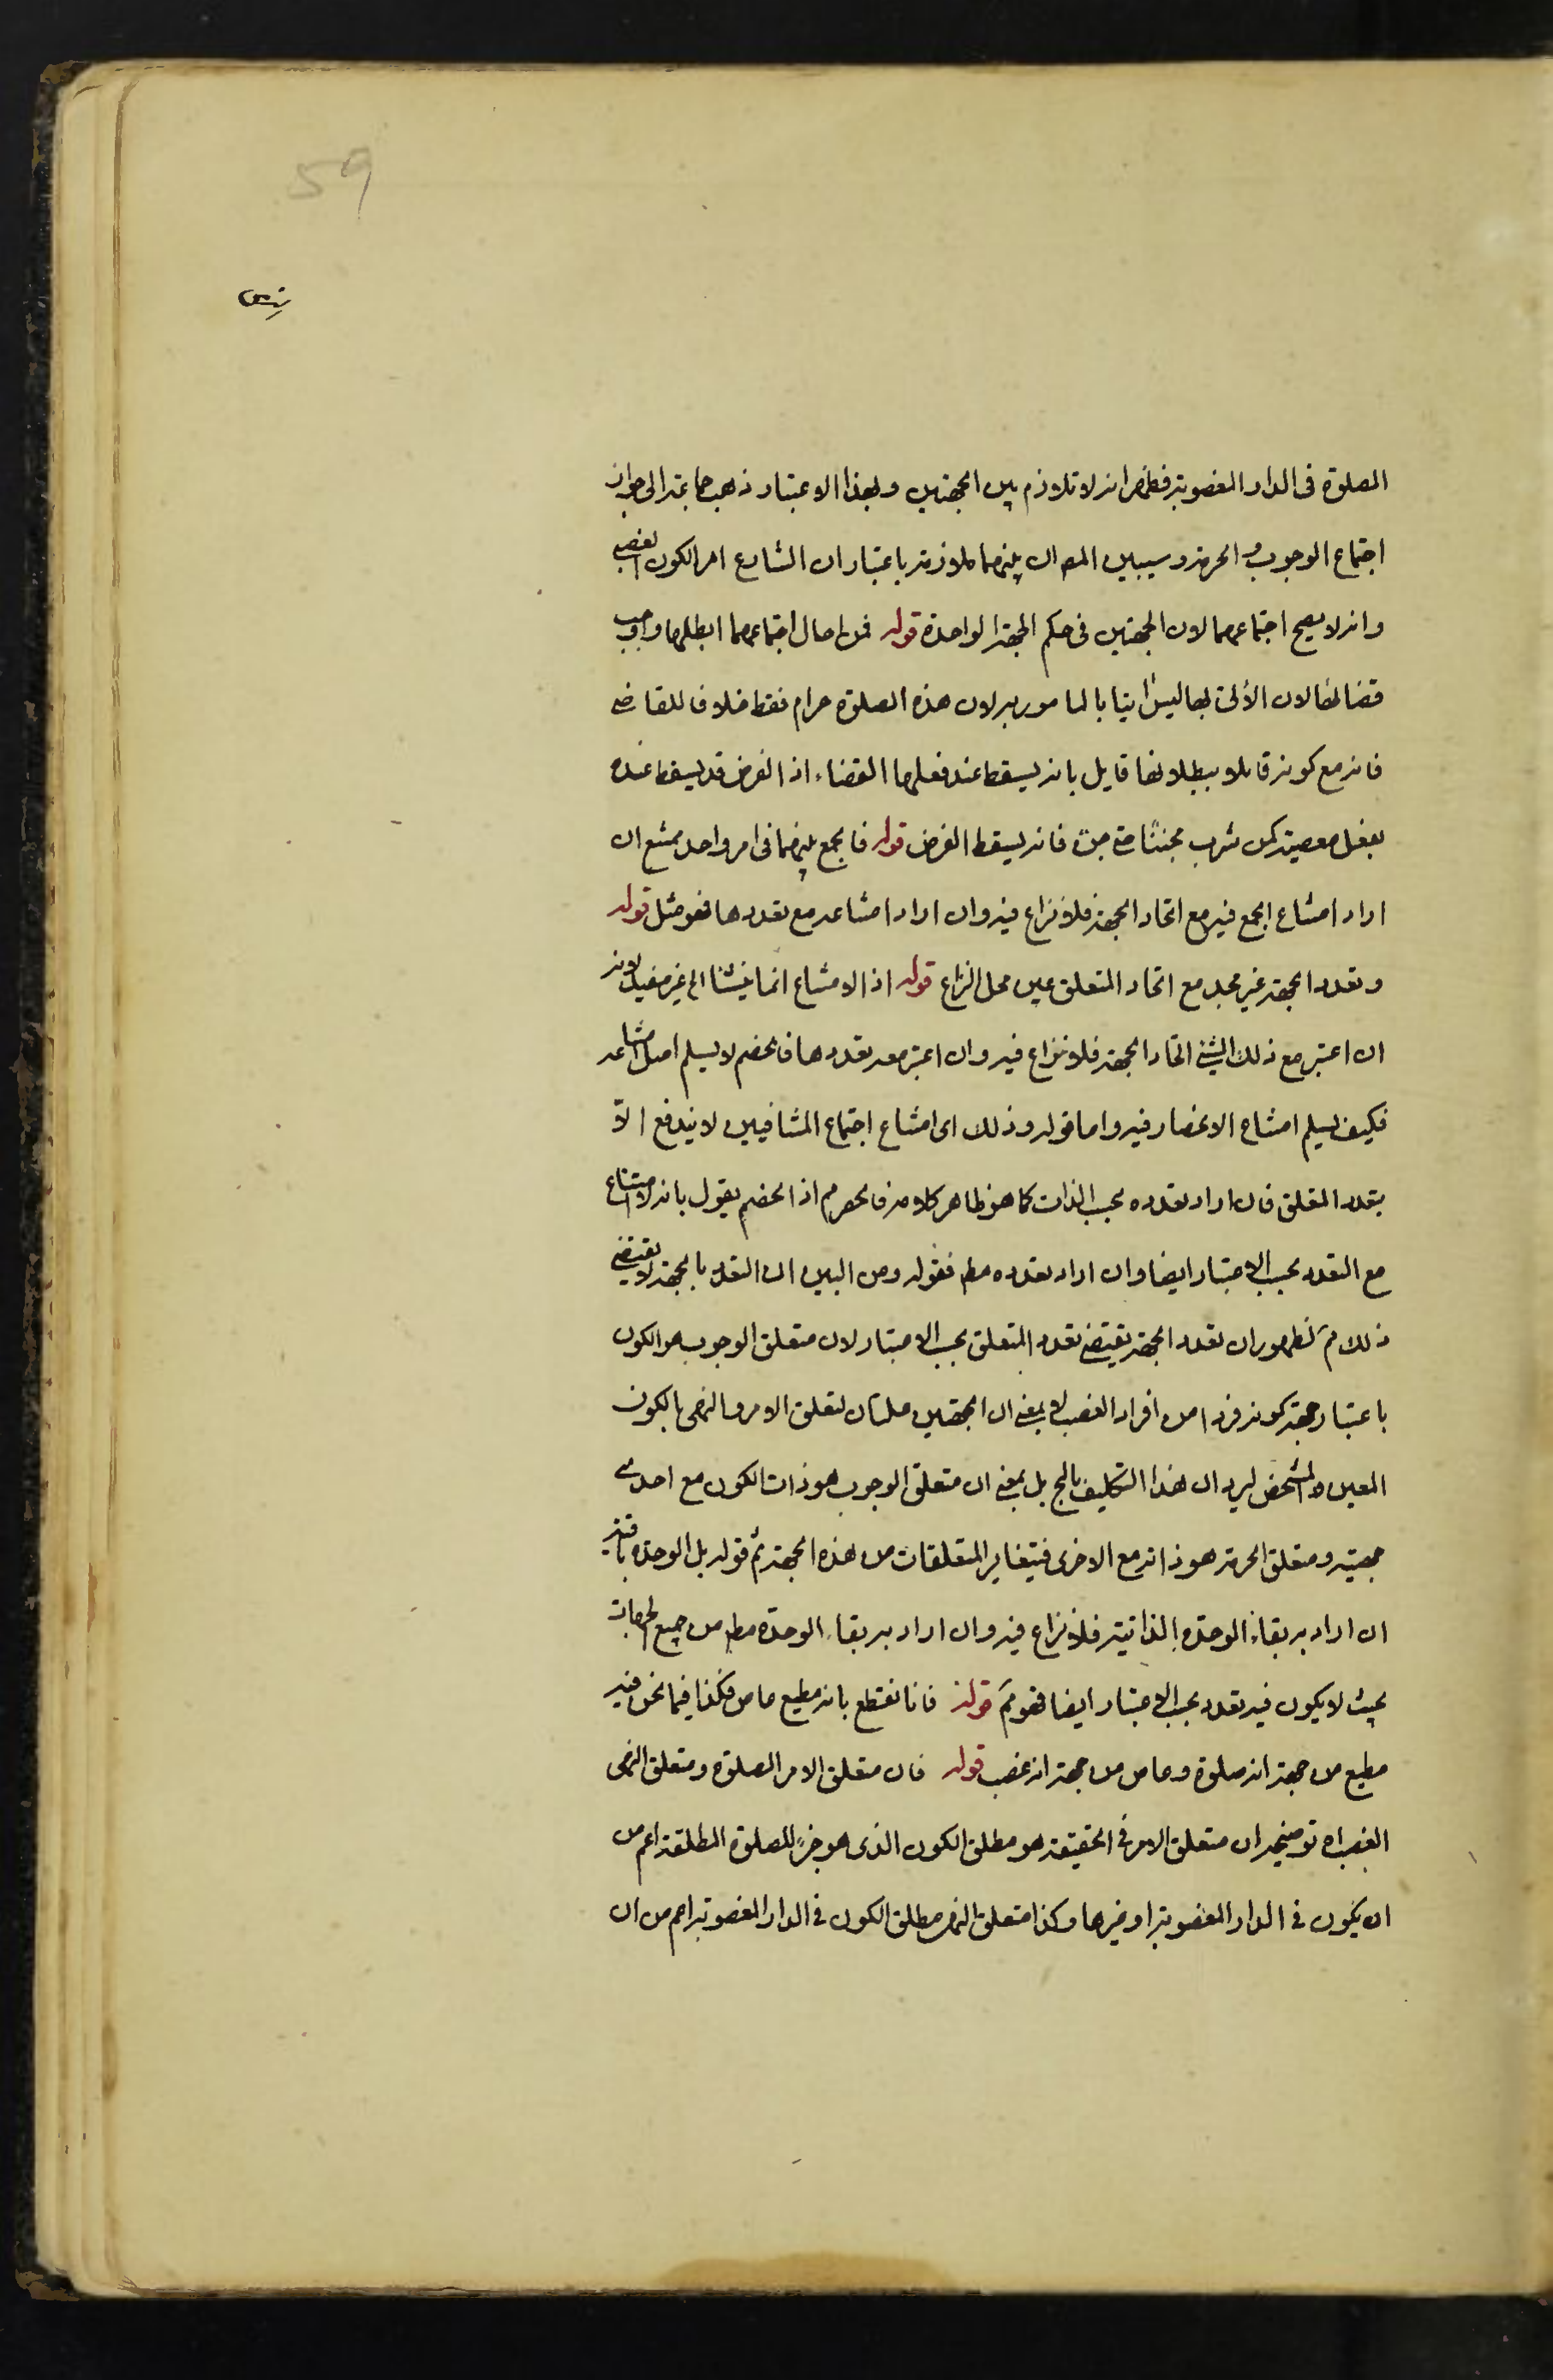 59
الصلوة فى الدار المغصوبة فظهر انه لا تلازم بين الجهتين وبهذا الاعتبار ذهب جماعة الى جواز
اجتماع الوجوب والحرمة وسيبين المص ان بينهما ملازمة باعتبار ان الشارع امر الكون الغصبى
وانه لا يصح اجتماعهما لان الجهتين فى حكم الجهة الواحدة قوله فمن احال اجتماعهما ابطلها واوجب
قضائها لان الآتى بها ليس اتيا بالمامور به لان هذه الصلوة حرام فقط خلافا للقاضى
فانه مع كونه قائلا ببطلانها قايل بانه يسقط عند فعلها القضاء اذ الفرض قد يسقط عنده
بفعل معصية كمن شرب مجننا حتى جن فانه يسقط الفرض قوله فالجمع بينهما فى امر واحد ممتنع ان
اراد امتناع الجمع فيه مع اتحاد الجهة فلا نزاع فيه وان اراد امتناعه مع تعددها فهو مثل قوله
وتعدد الجهة غير مجد مع اتحاد المتعلق عين محل النزاع قوله اذ الامتناع انما ينشا الى غير مفيد لانه
ان اعتبر مع ذلك الشئ اتحاد الجهة فلا نزاع فيه وان اعتبر معه تعددها فالخصم لا يسلم اصل امتناعه
فكيف يسلم امتناع الانحصار فيه واما قوله وذلك اى امتناع اجتماع المتنافيين لا يندفع الا
بتعدد المتعلق فان اراد تعدده بحسب الذات كما هو ظاهر كلامه فالحصر م اذ الخصم يقول بانه لا امتناع
مع التعدد بحسب الاعتبار ايضا وان اراد تعدده مط فقوله ومن البين ان التعدد بالجهة لا يقتضى
ذلك م لظهور ان تعدد الجهة يقتضى تعدد المتعلق بحسب الاعتبار لان متعلق الوجوب هو الكون
باعتبار جهة كونه فردا من افراد الغصب لا بمعنى ان الجهتين علتان لتعلق الامر والنهى بالكون
المعين والمشخص ليرد ان هذا التكليف بالمح بل بمعنى ان متعلق الوجوب هو ذات الكون مع احدى
جهتيه ومتعلق الحرمة هو ذاته مع الاخرى فيتغاير المتعلقات من هذه الجهة ثم قوله بل الوحدة باقية
ان اراد به بقاء الوحدة الذاتية فلا نزاع فيه وان اراد به بقاء الوحدة مط من جميع الجهات
بحيث لا يكون فيه تعدد بحسب الاعتبار ايضا فهو م قوله فانا نقطع بانه مطيع عاص فكذا فيما نحن فيه
مطيع من جهة انه صلوة وعاص من جهة انه غصب قوله فان متعلق الامر الصلوة ومتعلق النهى
الغصب اه توضيحه ان متعلق الامر فى الحقيقة هو مطلق الكون الذى هو جزء للصلوة المطلقة اعم من
ان يكون فى الدار المغصوبة او غيرها وكذا متعلق النهى مطلق الكون فى الدار المغصوبة اعم من ان